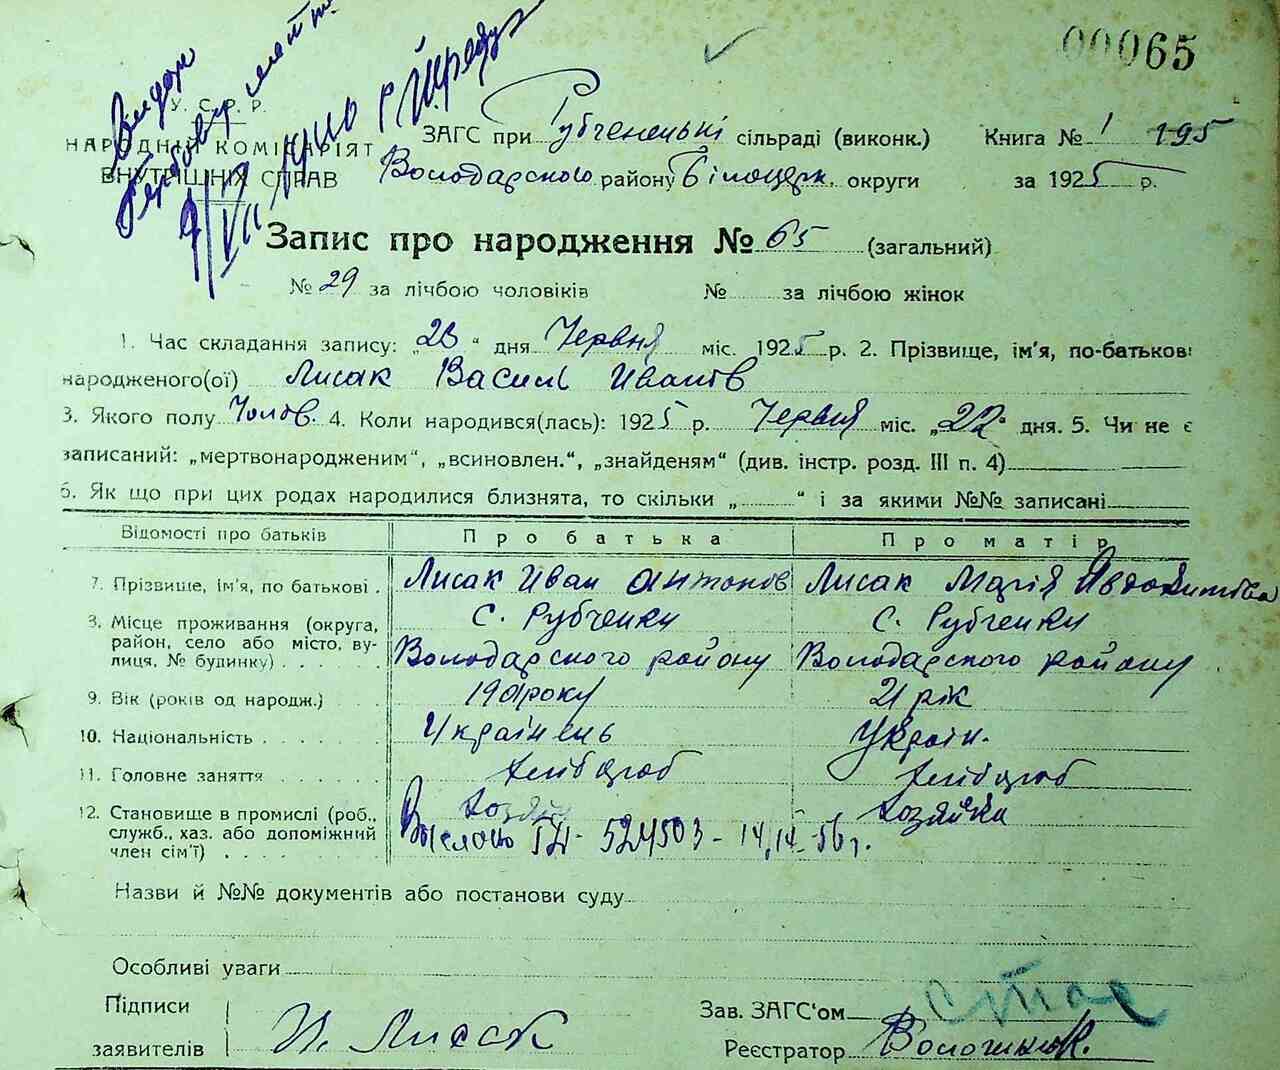 00065
У. С. Р. Р.
НАРОДНІЙ КОМІСАРІЯТ
ВНУТРІШНІХ СПРАВ
ЗАГС при Рубченецькі сільраді (виконк.) Книга № 1 195
Володарского району Білоцерк. округи за 1925 р.
Запис про народження № 65 (загальний)
№ 29 за лічбою чоловіків № за лічбою жінок
1. Час складання запису: „23“ дня Червня міс. 1925 р. 2. Прізвище, ім'я, по-батькові
народженого(ої) Лисак Василь Иванів
3. Якого полу Чолов. 4. Коли народився(лась): 1925 р. Червня міс. „22“ дня. 5. Чи не є
записаний: „мертвонародженим“, „всиновлен.“, „знайденям“ (див. інстр. розд. III п. 4)
6. Як що при цих родах народилися близнята, то скільки „ “ і за якими №№ записані
Відомості про батьків Про батька Про матір
7. Прізвище, ім'я, по батькові . Лисак Иван Антонов Лисак Марія Явдокимівна
8. Місце проживання (округа, с. Рубченки с. Рубченки
район, село або місто, ву-
лиця, № будинку) . . . . Володарского району Володарского району
9. Вік (років од народж.) . 1901 року 21 рік
10. Національність . . . . . Українець Україн.
11. Головне заняття . . . . . хлібороб хлібороб
12. Становище в промислі (роб., Хозяїн Хозяйка
служб., хаз. або допоміжний
член сім'ї) . . . . . 524503 - 14.IV-56 г.
Назви й №№ документів або постанови суду
Особливі уваги
Підписи
заявителів И. Лисак
Зав. ЗАГС'ом
Реєстратор